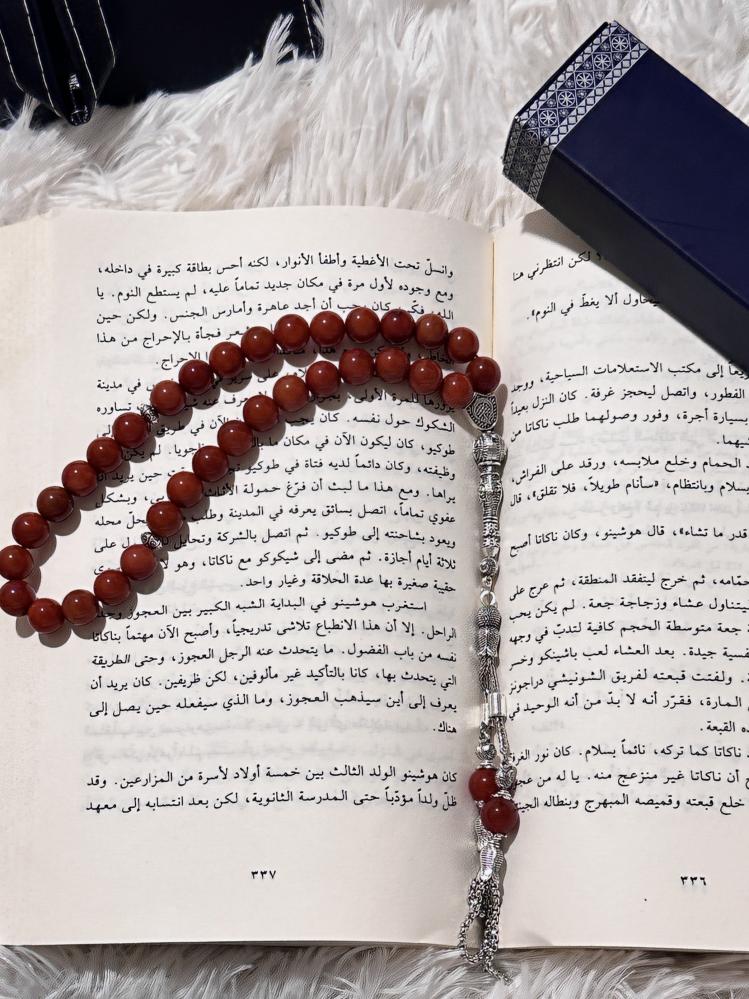 لكن انتظرني هنا
ألا يغطّ في النوم».
إلى مكتب الاستعلامات السياحية، ووجد
الفطور، واتصل ليحجز غرفة. كان النزل بعيداً
بسيارة أجرة، وفور وصولهما طلب ناكاتا من
الحمام وخلع ملابسه، ورقد على الفراش،
بسلام وبانتظام، «سأنام طويلاً، فلا تقلق»، قال
قدر ما تشاء»، قال هوشينو، وكان ناكاتا أصبح
ثم خرج ليتفقد المنطقة، ثم عرج على
يتناول عشاء وزجاجة جعة. لم يكن يحب
جعة متوسطة الحجم كافية لتدبّ في وجهه
جيدة. وبعد العشاء لعب باشينكو وخسر
ولفتت قبعته لفريق الشونيشي دراجونز
المارة، فقرّر أنه لا بدّ من أنه الوحيد في
القبعة.
ناكاتا كما تركه، نائماً بسلام. كان نور
أن ناكاتا غير منزعج منه. يا له من
خلع قبعته وقميصه المبهرج وبنطاله
٣٣٦
وانسلّ تحت الأغطية وأطفأ الأنوار، لكنه أحس بطاقة كبيرة في داخله،
ومع وجوده لأول مرة في مكان جديد تماماً عليه، لم يستطع النوم. يا
كان يجب أن أجد عاهرة وأمارس الجنس. ولكن حين
فجأة بالإحراج من هذا
الإحراج.
على في مدينة
يزورها للمرة الأولى. تساوره
الشكوك حول نفسه. كان الآن في طريق
طوكيو، كان ليكون الآن في مكان ما
وظيفته، وكان دائماً لديه فتاة في طوكيو حين يريد أن
يراها. ومع هذا ما لبث أن فرّغ حمولة الأثاث وبشكل
عفوي تماماً، اتصل بسائق يعرفه في المدينة محله
ويعود بشاحنته إلى طوكيو. ثم اتصل بالشركة وتحايل على
ثلاثة أيام أجازة. ثم مضى إلى شيكوكو مع ناكاتا، وهو لا
حقيبة صغيرة بها عدة الحلاقة وغيار واحد.
استغرب هوشينو في البداية الشبه الكبير بين العجوز وجدّه
الراحل. إلا أن هذا الانطباع تلاشى تدريجياً، وأصبح الآن مهتماً بناكاتا
نفسه من باب الفضول. ما يتحدث عنه الرجل العجوز، وحتى الطريقة
التي يتحدث بها، كانا بالتأكيد غير مألوفين، لكن ظريفين. كان يريد أن
يعرف إلى أين سيذهب العجوز، وما الذي سيفعله حين يصل إلى
هناك.
كان هوشينو الولد الثالث بين خمسة أولاد لأسرة من المزارعين. وقد
ظلّ ولداً مؤدّباً حتى المدرسة الثانوية، لكن بعد انتسابه إلى معهد
٣٣٧